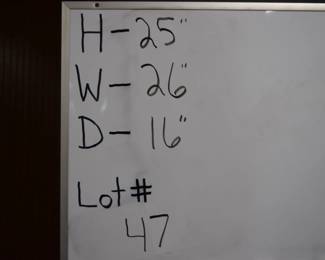 H-25"
W-26"
D-16"
Lot#
47